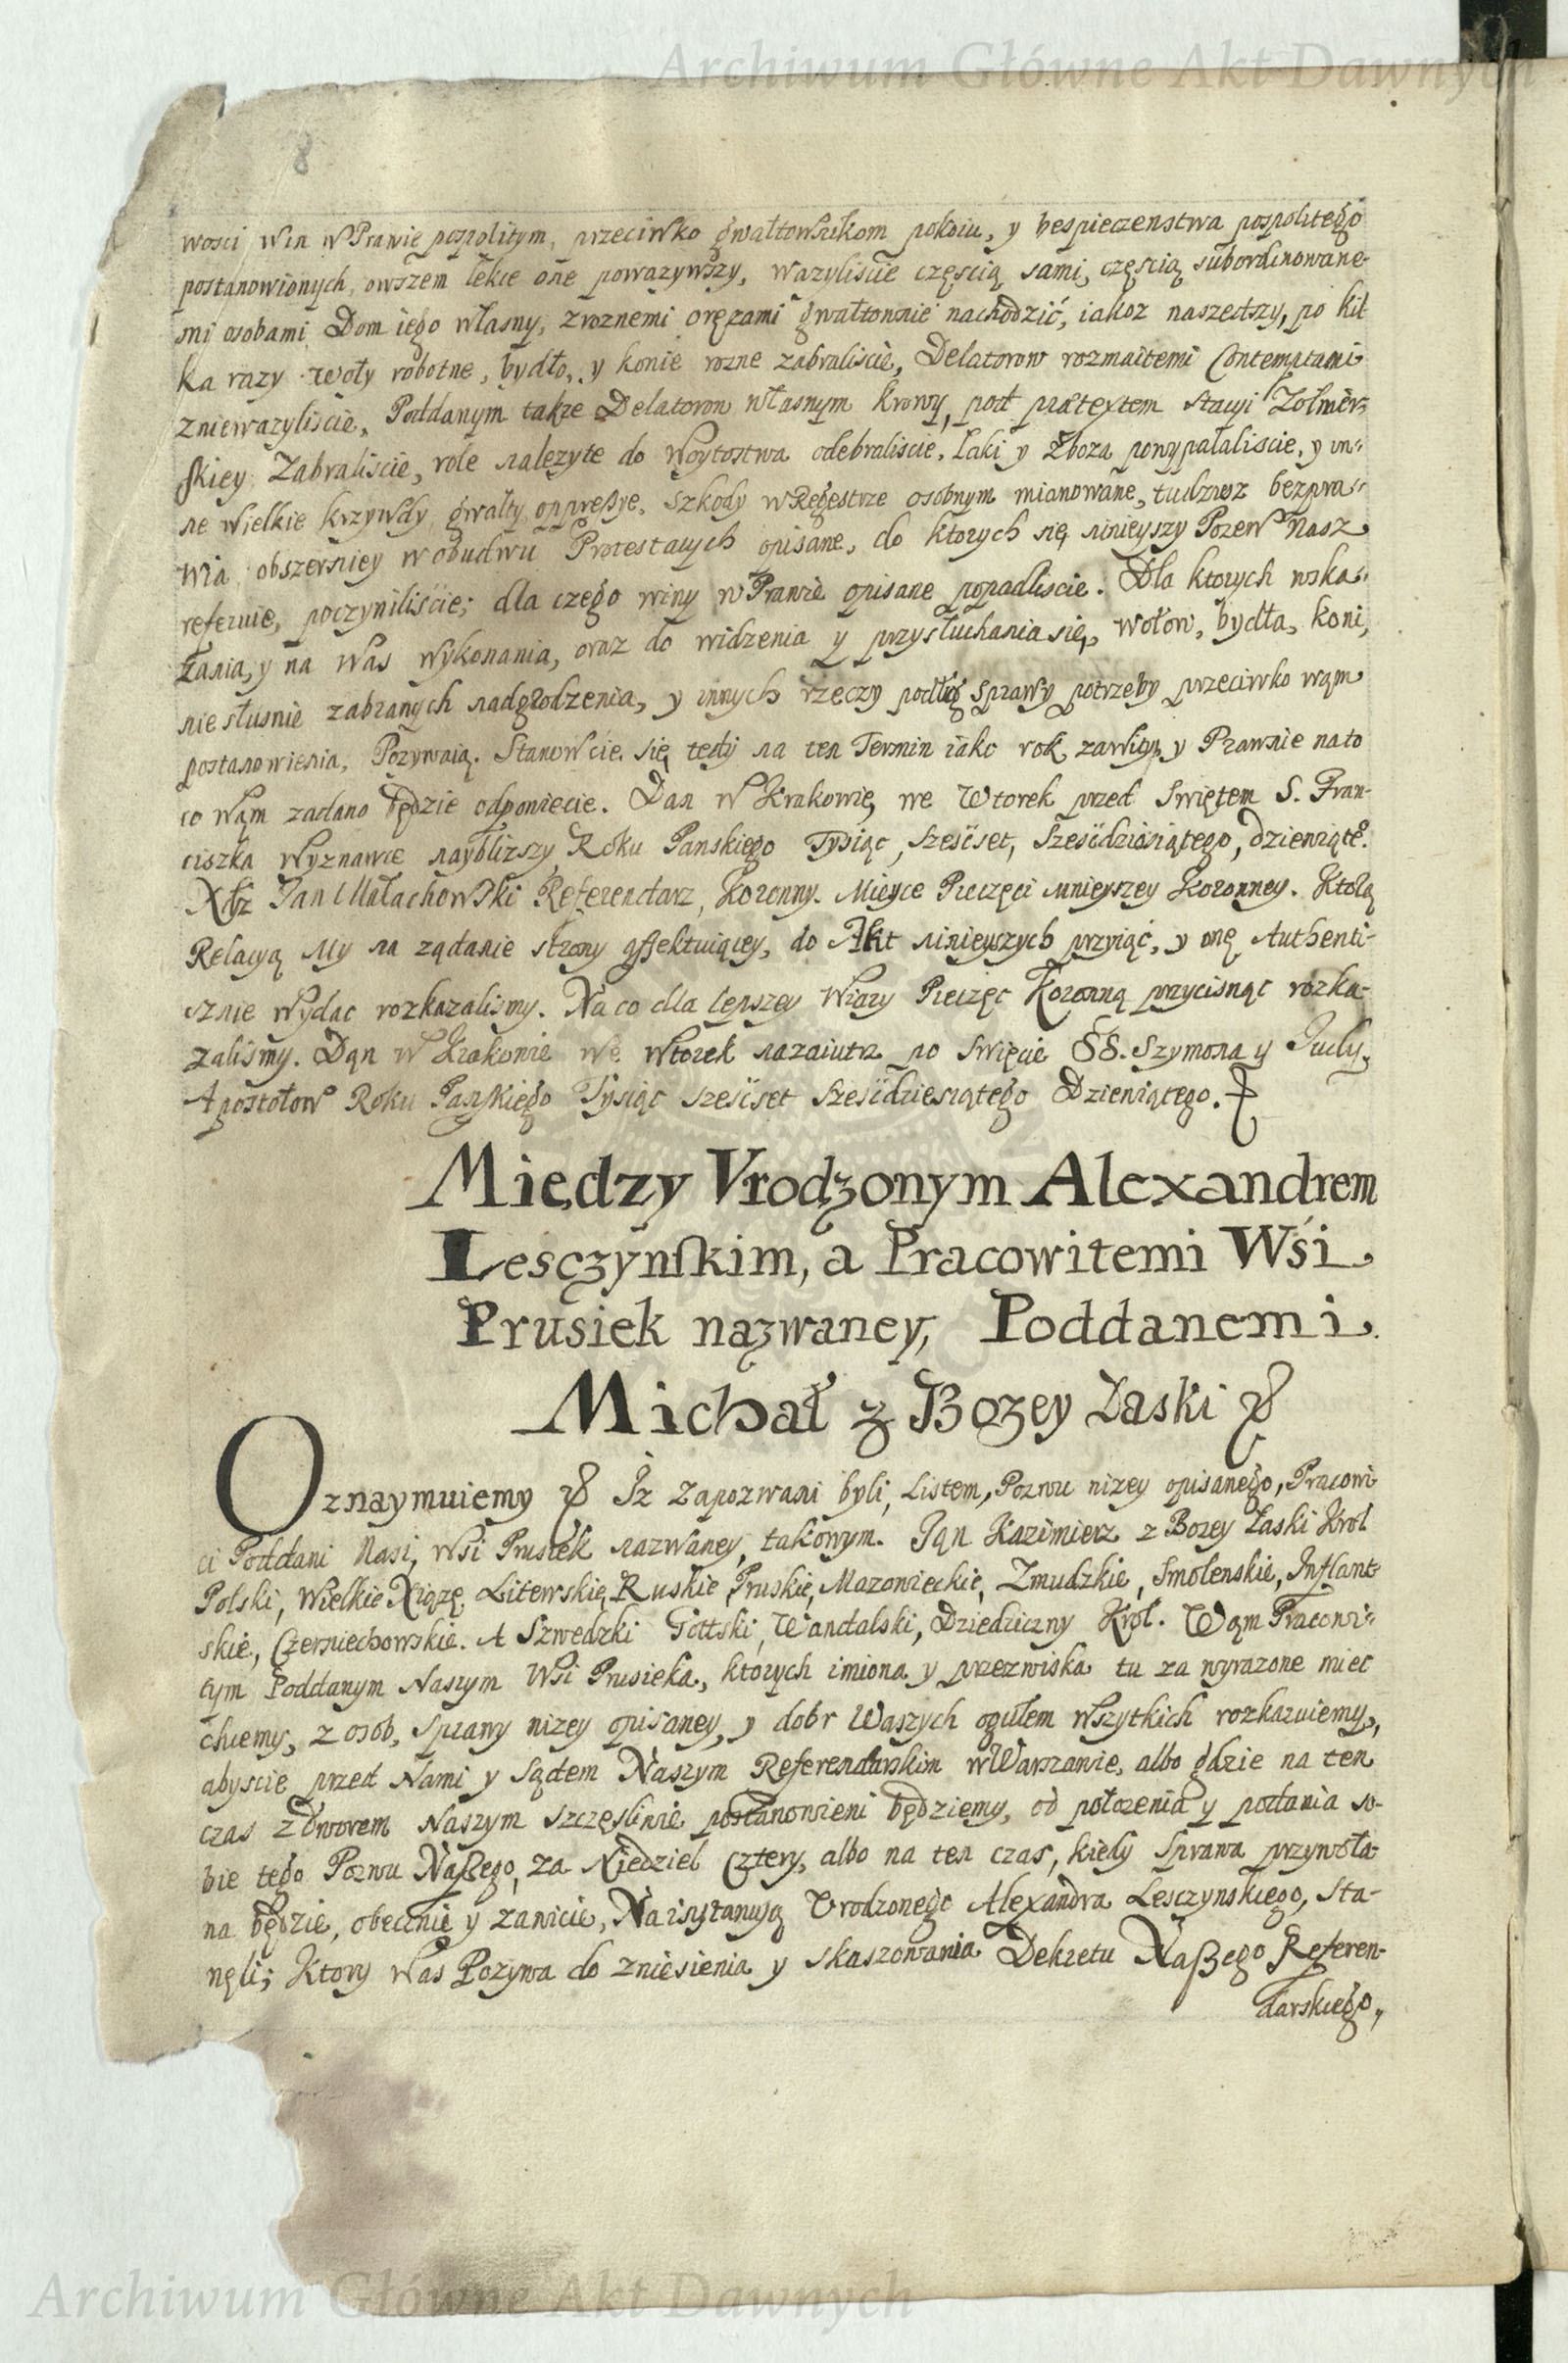 Archiwum Główne Akt Dawnych
8
wosci win w Prawie pospolitym, przeciwko gwałtownikom pokoiu, y bespieczenstwa pospolitego
postanowionych, owszem lekce one powazywszy, wazyliscie częscią sami, częscią subordinowane-
mi osobami Dom iego własny, zroznemi oręzami gwałtownie nachodzić, iakoz naszedszy, po kil
ka razy woły robotne, bydło, y konie rozne zabraliscie, Delatorow rozmaitemi Contemptami
zniewazyliscie, Poddanym takze Delatorow własnym krowy, pod prætextem stacyi Zołnier-
skiey zabraliscie, role nalezyte do Woytostwa odebraliscie, Łaki y Zboza powypałaliscie, y in-
ne wielkie krzywdy, gwałty, oppreßye, szkody w Regestrze osobnym mianowane, tudziesz bezpra-
wia obszerniey w obudwu Protestacyach opisane, do ktorych się ninieyszy Pozew Nasz
referuie, poczyniliscie; dla czego winy w Prawie opisane popadliscie. Dla ktorych wska-
zania, y na was wykonania, oraz do widzenia y przysłuchania się, wołow, bydła, koni,
niesłusnie zabranych nadgrodzenia, y innych rzeczy podług sprawy potrzeby przeciwko wąm
postanowienia, Pozywaią. Stanowcie się tedy na ten Termin iako rok zawity, y Prawnie na to
co wąm zadano będzie odpowiecie. Dan w Krakowie, we Wtorek przed Swiętem S. Fran-
ciszka Wyznawce nayblizszy, Roku Panskiego Tysiąc, szescset, szescdziesiątego, dziewiątego.
Xdz Jan Małachowski Referendarz, Koronny. Mieyce Pieczęci mnieyszey Koronney. Ktorą
Relacyą My na ządanie strony affektuiącey, do Akt ninieyszych przyiąć, y onę Authenti-
sznie wydac rozkazalismy. Na co dla lepszey Wiary Pieczęc Koronną przycisnąc rozka-
zalismy. Dąn w Krakowie we Wtorek nazaiutrz po swięcie SS. Szymona y Judy,
Apostołow Roku Panskiego Tysiąc szescset szescdziesiątego Dziewiątego.
Między Vrodzonym Alexandrem
Lesczynskim, a Pracowitemi Wśi
Prusiek nazwaney, Poddanemi
Michał z Bozey Łaski
Oznaymuiemy Iz zapozwani byli, Listem, Pozwu nizey opisanego, Pracowi
ci Poddani Nasi, wsi Prusiek nazwaney, takowym. Jąn Kazimierz z Bozey Łaski Krol
Polski, Wielkie Xiązę, Litewskie, Ruskie, Pruskie, Mazowieckie, Zmudzkie, Smolenskie, Inflant-
skie, Czerniechowskie. A Szwedzki Gottski, Wandalski, Dziedziczny Krol. Wąm Pracowi-
tym Poddanym Naszym Wsi Prusieka, ktorych imiona y przezwiska tu za wyrazone miec
chcemy, z osob, sprawy nizey opisaney, y dobr Waszych ogułem wszytkich rozkazuiemy,
abyscie przed Nami y Sądem Naszym Referendarskim w Warszawie, albo gdzie na ten
czas z dworem Naszym szczęsliwie postanowieni będziemy, od połozenia y podania so-
bie tego Pozwu Naßego, za Niedziel Cztery, albo na ten czas, kiedy Sprawa przywoła-
na będzie, obecnie y zawicie, Na instancyą Vrodzonego Alexandra Lesczynskiego, sta-
nęli; Ktory was Pozywa do zniesienia y skaszowania Dekretu Naßego Referen-
darskiego,
Archiwum Główne Akt Dawnych